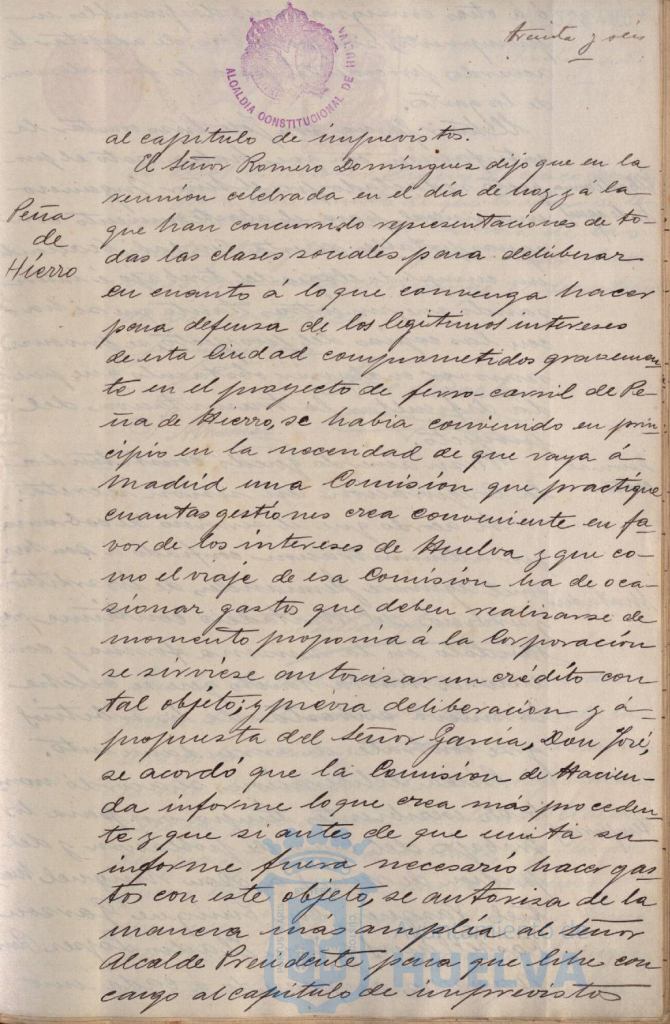 treinta y seis
ALCALDIA CONSTITUCIONAL DE HUELVA
al capítulo de imprevistos.
El Señor Romero Domínguez dijo que en la
reunion celebrada en el día de hoy y á la
Peña
de
Hierro
que han concurrido representaciones de to-
das las clases sociales para deliberar
en cuanto á lo que convenga hacer
para defensa de los legitimos intereses
de esta Ciudad comprometidos gravemen-
te en el proyecto de ferro-carril de Pe-
ña de Hierro, se habia convenido en prin-
cipio en la necesidad de que vaya á
Madrid una Comisión que practique
cuantas gestiones crea conveniente en fa-
vor de los intereses de Huelva y que co-
mo el viaje de esa Comisión ha de oca-
sionar gastos que deben realizarse de
momento proponia á la Corporación
se sirviese autorizar un crédito con
tal objeto; y prévia deliberacion y á
propuesta del Señor García, Don José,
se acordó que la Comision de Hacien-
da informe lo que crea más proceden-
te y que si antes de que emita su
informe fuera necesario hacer gas
tos con este objeto, se autoriza de la
manera más amplía al Señor
Alcalde Presidente para que libre con
cargo al capitulo de imprevistos
HUELVA